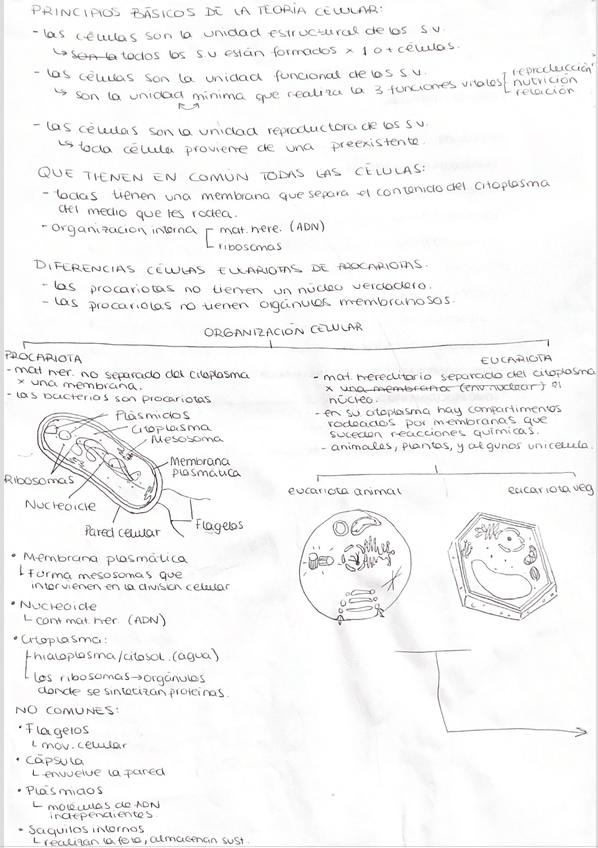 PRINCIPIOS BÁSICOS DE LA TEORÍA CELULAR:
- las células son la unidad estructural de los s.v.
↳ son la todos los s.v están formados x 1 o + células.
- las células son la unidad funcional de los s.v.
↳ son la unidad mínima que realiza la 3 funciones vitales
reproducción
nutrición
relación
- las células son la unidad reproductora de los s.v.
↳ toda célula proviene de una preexistente.
QUE TIENEN EN COMÚN TODAS LAS CÉLULAS:
- todas tienen una membrana que separa el contenido del citoplasma
del medio que les rodea.
- organización interna
mat. here. (ADN)
ribosomas
DIFERENCIAS CÉLULAS EUCARIOTAS DE PROCARIOTAS.
- las procariotas no tienen un núcleo verdadero.
- las procariotas no tienen orgánulos membranosos.
ORGANIZACIÓN CELULAR
PROCARIOTA
- mat her. no separado del citoplasma
x una membrana.
- las bacterias son procariotas
Plásmidos
Citoplasma
Mesosoma
Membrana
plasmática
Ribosomas
Nucleoide
Pared celular
Flagelos
• Membrana plasmática
↳ Forma mesosomas que
intervienen en la división celular
• Nucleoide
↳ cont mat. her. (ADN)
• Citoplasma:
hialoplasma/citosol. (agua)
los ribosomas → orgánulos
donde se sintetizan proteínas.
NO COMUNES:
• Flagelos
↳ mov. celular
• Cápsula
↳ envuelve la pared
• Plásmidos
↳ moléculas de ADN
independientes.
• Saquitos internos
↳ realizan la foto, almacenan sust.
EUCARIOTA
- mat. hereditario separado del citoplasma
x una membrana (env nuclear) el
núcleo.
- en su citoplasma hay compartimentos
rodeados por membranas que
suceden reacciones químicas.
- animales, plantas, y algunos unicelula.
eucariota animal
eucariota veg